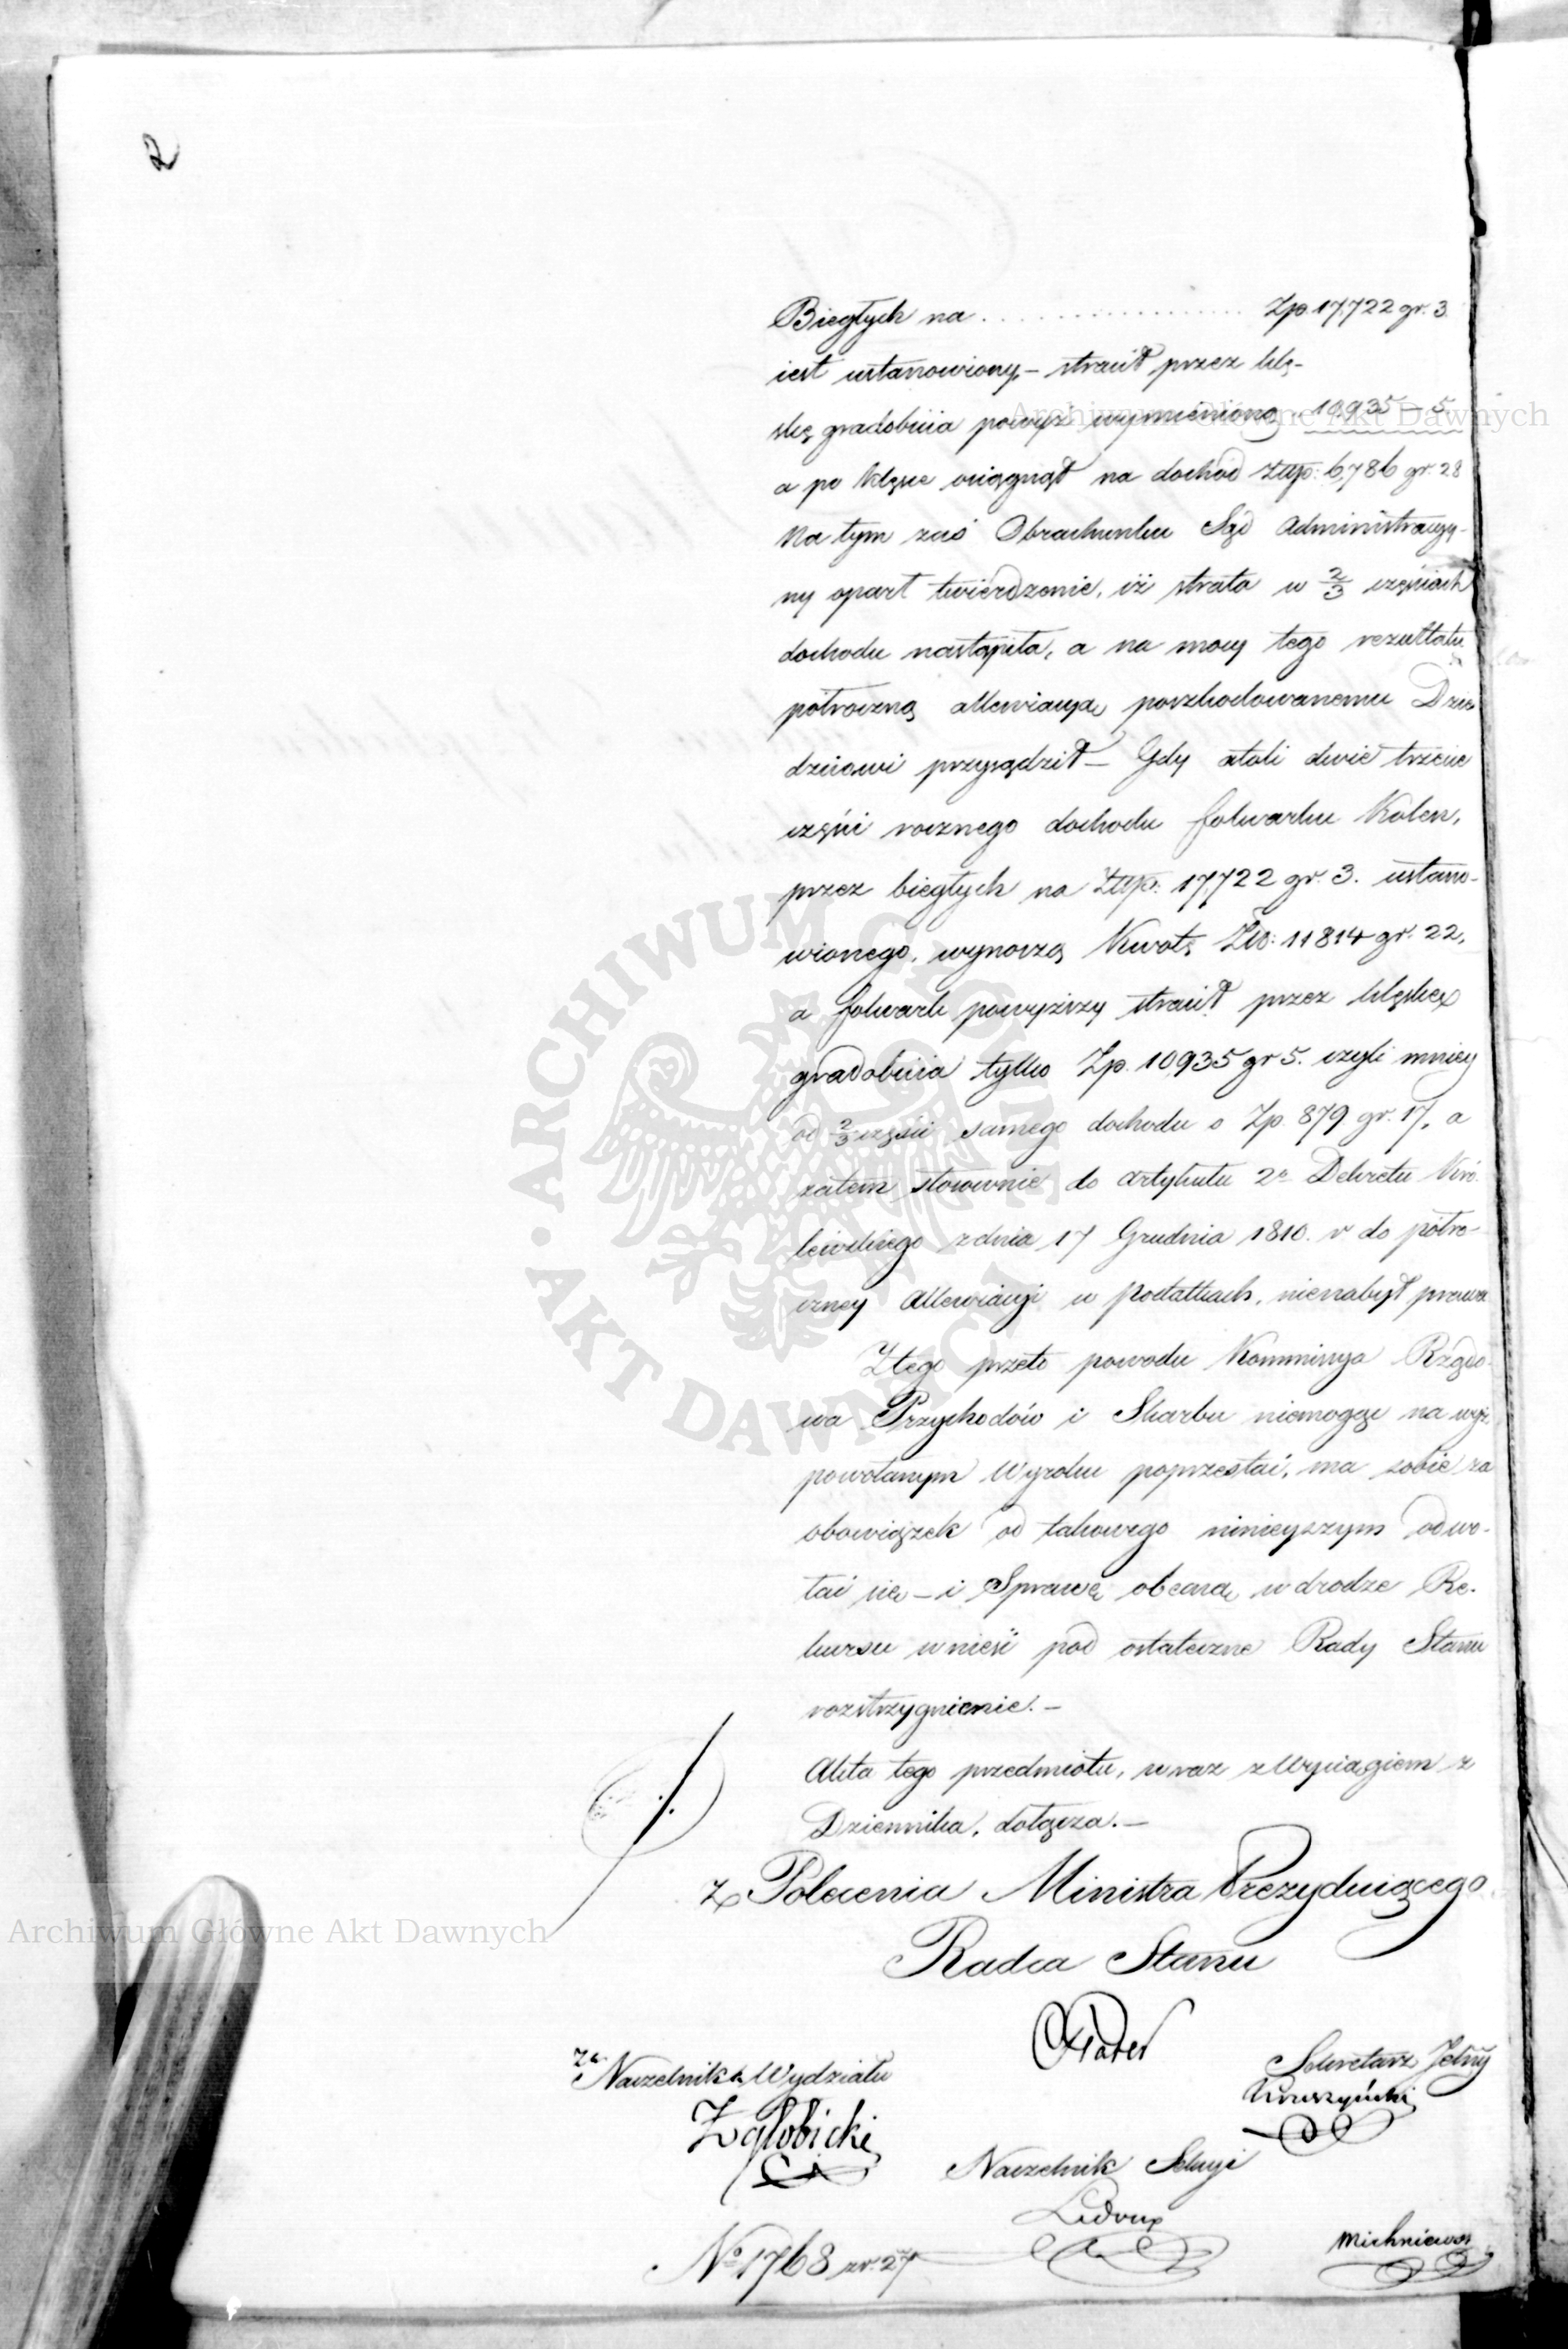 2
Biegłych na . . . . . . . . . . . . . . . . . Zp. 17,722 gr. 3.
iest ustanowiony, – stracił przez klę-
skę gradobicia powyż wymienioną „ 10,935 – 5.
a po klęsce osiągnął na dochód Złłp: 6,786 gr. 28
Na tym zaś Obrachunku Sąd Administracyj-
ny oparł twierdzenie, iż strata w 2/3 częściach
dochodu nastąpiła, a na mocy tego rezultatu
półroczną allewiacyą poszkodowanemu Dzie-
dzicowi przysądził – Gdy atoli dwie trzecie
części rocznego dochodu folwarku Kolen,
przez biegłych na Złłp: 17,722 gr. 3. ustano-
wionego, wynoszą Kwotę Złło: 11 814 gr. 22,
a folwark powyższy stracił przez klęskę
gradobicia tylko Zp. 10,935 gr 5. czyli mniey
od 2/3 części samego dochodu o Zp. 879 gr. 17, a
zatem stosownie do artykułu 2º Dekretu Kró-
lewskiego z dnia 17 Grudnia 1810. r do półro-
czney Allewiacyi w podatkach, nienabył prawa
Ztego przeto powodu Kommissya Rządo-
wa Przychodów i Skarbu niemogąc na wyż
powołanym Wyroku poprzestać, ma sobie za
obowiązek od takowego ninieyszym odwo-
łać się – i Sprawę obecną w drodze Re-
kursu wnieść pod ostateczne Rady Stanu
rozstrzygnienie. –
Akta tego przedmiotu, wraz z Wyciągiem z
Dziennika, dołącza. –
z Polecenia Ministra Prezyduiącego
Radca Stanu
Plater
za Naczelnika Wydziału
Zgłobicki
Sekretarz Jelny
Kruszyński
Naczelnik Sekcyi
Ledoux
Nº 1768 zr. 27
Archiwum Główne Akt Dawnych
Archiwum Główne Akt Dawnych
ARCHIWUM GŁÓWNE AKT DAWNYCH